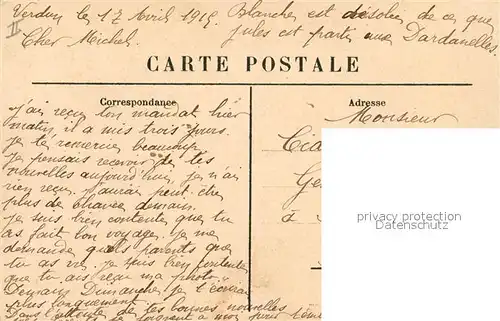 Verdun le 17 Avril 1915 Blanche est désolée de ce que
Cher Michel. Jules est parti aux Dardanelles.
CARTE POSTALE
Correspondance
Adresse
J'ai reçu ton mandat hier
matin, il a mis trois jours.
Je te remercie beaucoup.
Je pensais recevoir de tes
nouvelles aujourd'hui, je n'ai
rien reçu. J'aurai peut être
plus de chance demain.
Je suis bien contente que tu
as fait bon voyage. Je me
demande quels parents que
tu as vu. Je suis bien contente
que tu ais reçu ma photo.
Demain Dimanche, je t'écrirai
plus longuement.
Dans l'attente de tes bonnes nouvelles
Monsieur
à
privacy protection